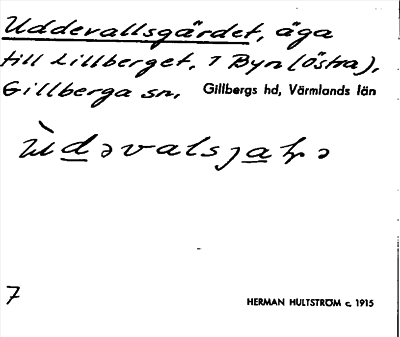 Uddevallsgärdet, äga
till Lillberget, 1 Byn (östra),
Gillberga sn, Gillbergs hd, Värmlands län
7
HERMAN HULTSTRÖM c. 1915